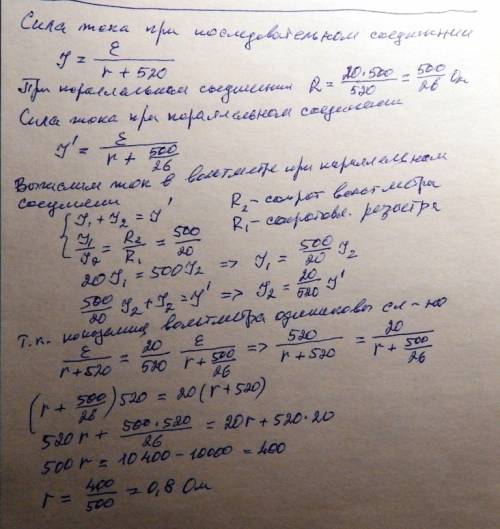 Сила тока при последовательном соединении
I = ε / (r + 520)
При параллельном соединении R = 20·500 / 520 = 500 / 26 Ом
Сила тока при параллельном соединении
I' = ε / (r + 500/26)
Вычислим ток в вольтметре при параллельном
соединении
R₂ - сопрот вольтметра
{ I₁ + I₂ = I'
R₁ - сопротовл. резистра
I₁ / I₂ = R₂ / R₁ = 500 / 20
20 I₁ = 500 I₂ => I₁ = 500/20 I₂
500/20 I₂ + I₂ = I' => I₂ = 20/520 I'
Т.к. показания вольтметра одинаковы сл-но
ε / (r + 520) = 20/520 ε / (r + 500/26) => 520 / (r + 520) = 20 / (r + 500/26)
(r + 500/26) 520 = 20 (r + 520)
520 r + 500·520 / 26 = 20r + 520·20
500 r = 10400 - 10000 = 400
r = 400/500 = 0,8 Ом